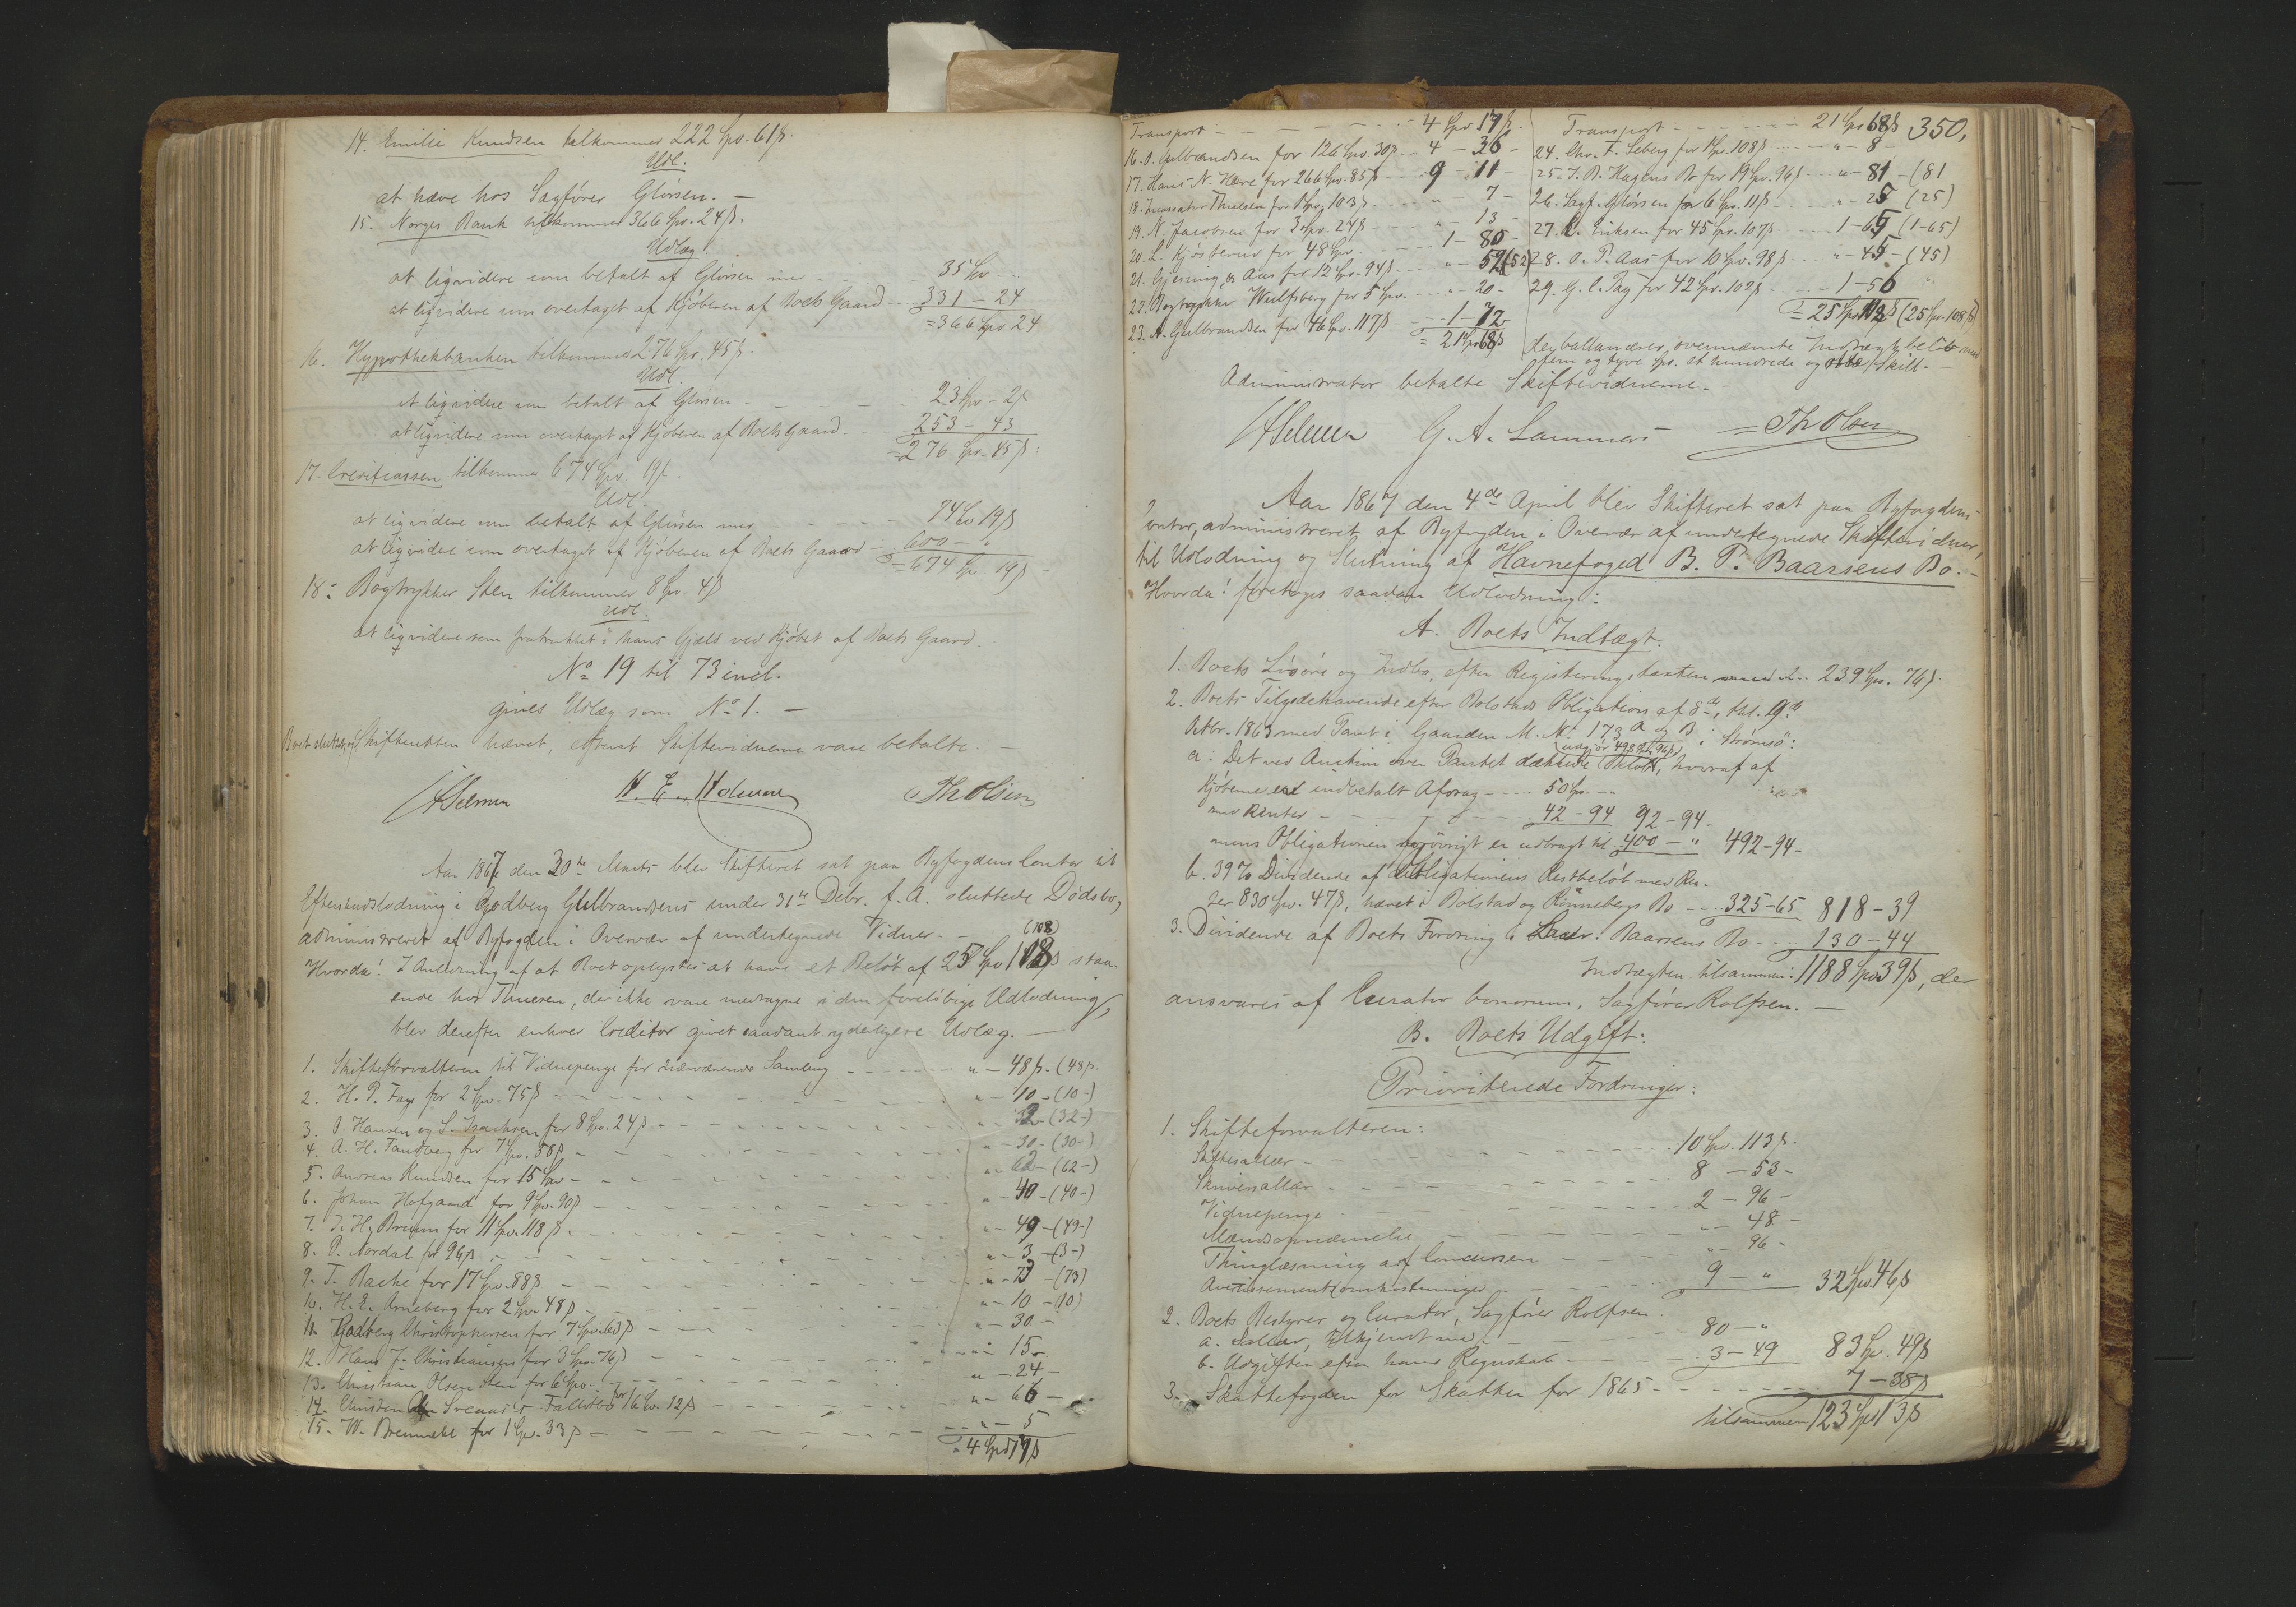 14. Emilie Knudsen tilkommer 222 Spd. 61 ß.
Udl.
at hæve hos Sagfører Glørsen. —
15. Norges Bank tilkommer 366 Spd. 24 ß.
Udlæg.
at ligvidere som betalt af Glørsen med 35 Spd. —
at ligvidere som overtaget af Kjøberen af Boets Gaard 331 — 24
= 366 Spd 24
16. Hypothekbanken tilkommer 276 Spd. 45 ß.
Udl.
at ligvidere som betalt af Glørsen — 23 Spd — 2 ß
at ligvidere som overtaget af Kjøberen af Boets Gaard 253 — 43
= 276 Spd. 45 ß.
17. Creditcassen tilkommer 674 Spd. 19 ß.
Udl.
at ligvidere som betalt af Glørsen med 74 Spd 19 ß
at ligvidere som overtaget af Kjøberen af Boets Gaard 600 — "
= 674 Sp. 19 ß
18. Bogtrykker Sten tilkommer 8 Spd. 4 ß
Udl.
at ligvidere som fratrukket i hans Gjæld ved Kjøbet af Boets Gaard.
No 19 til 73 incl.
gives Udlæg som No 1. —
Boet sluttet og Skifteretten hævet, efterat Skiftevidnerne vare betalte. —
Th Olsen
Aar 1867 den 30te Marts blev Skifteret sat paa Byfogdens Contor til
Efterudlodning i Godberg Gulbrandsens under 31te Decbr. f. A. sluttede Dødsbo,
administreret af Byfogden i Overvær af undertegnede Vidner. —
(108)
Hvorda! I Anledning af at Boet oplystes at have et Beløb af 25 Spd 108 ß staa-
ende hos Thuesen, der ikke vare medtagne i den foreløbige Udlodning,
blev derefter enhver Creditor givet saadant yderligere Udlæg. —
1. Skifteforvalteren til Vidnepenge for nærværende Samling " — 48 ß - (48 ß.
2. H. P. Faye for 2 Spd. 75 ß " — 10 - (10 -)
3. P. Hansen og S. Isachsen for 8 Spd. 24 ß " — 32 - (32 -)
4. A. H. Tandberg for 7 Spd. 58 ß " — 30 - (30 -)
5. Andreas Knudsen for 15 Spd " — 62 - (62 -)
6. Johan Hofgaard for 9 Spd. 90 ß " — 40 - (40 -)
7. J. H. Bruun for 11 Spd. 118 ß " — 49 - (49 -)
8. P. Nordal for 96 ß " — 3 - (3 -)
9. T. Backe for 17 Spd. 88 ß " — 73 - (73)
10. H. E. Arneberg for 2 Spd. 48 ß " — 10 - (10)
11. Godberg Christophersen for 7 Spd. 63 ß " — 30 -
12. Hans J. Christiansen for 3 Spd. 76 ß " — 15 -
13. Christian Olsen Sten for 6 Spd. " — 24 -
14. Christen Sveaas's Fallitbo for 16 Spd. 12 ß " — 66 -
15. W. Bremmehl for 1 Spd. 33 ß " — 5
= 4 Spd 17 ß
350,
Transport 4 Spd 17 ß.
16. O. Gulbrandsen for 126 Spd. 30 ß 4 — 36 -
17. Hans N. Hære for 266 Spd. 85 ß 9 — 11 -
18. Thuesen for 1 Spd. 103 ß " — 7 -
19. N. Jacobsen for 3 Spd. 24 ß " — 13 -
20. L. Kjøsterud for 48 Spd. 1 — 80 -
21. Gjersing & Aas for 12 Spd. 94 ß " — 52 (52)
22. Bogtrykker Wulfsberg for 5 Spd. " — 20 -
23. A. Gulbrandsen for 46 Spd. 117 ß 1 — 72
= 21 Spd 68 ß
Transport 21 Spd 68 ß
24. Chr. F. Seberg for 1 Spd. 108 ß " — 8 -
25. J. B. Hagens Bo for 19 Spd. 96 ß " — 81 - (81
26. Sagf. Glørsen for 6 Spd. 11 ß " — 25 (25)
27. L. Eriksen for 45 Spd. 107 ß 1 — 65 (1 - 65)
28. O. P. Aas for 10 Spd. 98 ß " — 45 - (45)
29. G. C. Fay for 42 Spd. 102 ß 1 — 56
= 25 Spd 108 ß (25 Spd. 108 ß)
der ballancerer ovennævnte Indtægtsbeløb med
fem og tyve Spd. et hundrede og otte Skill. —
Administrator betalte Skiftevidnerne. —
G. A. Lammers Th Olsen
Aar 1867 den 4de April blev Skifteret sat paa Byfogdens
Contor, administreret af Byfogden i Overvær af undertegnede Skiftevidner,
til Udlodning og Slutning af Havnefoged B. P. Baarsens Bo. —
Hvorda! foretoges saadan Udlodning:
A. Boets Indtægt.
1. Boets Løsøre og Indbo, efter Registreringstaxten 239 Spd. 76 ß.
2. Boets Tilgodehavende efter Bolstads Obligation af 8de, thl. 9de
Octbr. 1863 med Pant i Gaarden M. No 173 A og B i Strømsø:
(udgjør 498 Spd. 96 ß)
a: Det ved Auction over Pantet dækkede Beløb, hvoraf af
Kjøberne indbetalt Afdrag 50 Spd. —
med Renter 42 — 94 92 — 94 -
mens Obligationen forøvrigt er udbragt til 400 — " 492 — 94 -
b. 39 % Dividende af Obligationens Restbeløb med Ren-
ter 830 Spd. 47 ß, hævet i Bolstad og Rønnebergs Bo 325 — 65 818 — 39
3. Dividende af Boets Fordring i Laur. Baarsens Bo 130 — 44
Indtægten tilsammen: 1188 Spd 39 ß, der
ansvares af Curator bonorum, Sagfører Rolfsen. —
B. Boets Udgift:
Prioriterede Fordringer:
1. Skifteforvalteren:
Skiftesallær 10 Spd. 113 ß.
Skriversallær 8 — 53 -
Vidnepenge 2 — 96 -
Mændsopnævnelse " — 48 -
Thinglæsning af Concursen " — 96 -
Avertissementsomkostninger 9 — " 32 Spd 46 ß
2. Boets Bestyrer og Curator, Sagfører Rolfsen.
a. Sallær, tilkjendt med 80 — "
b. Udgifter efter hans Regnskab 3 — 49 83 Sp. 49 ß
3. Skattefogden for Skatter for 1865 7 — 38 ß
tilsammen 123 Spd 13 ß